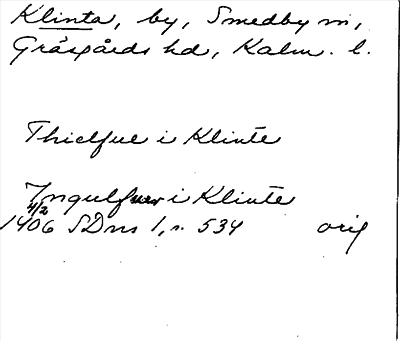 Klinta, by, Smedby sn,
Gräsgårds hd, Kalm. l.
Thielfue i Klinte
Ingulfuer i Klinte
4/2
1406 SDns 1, s. 534 orig